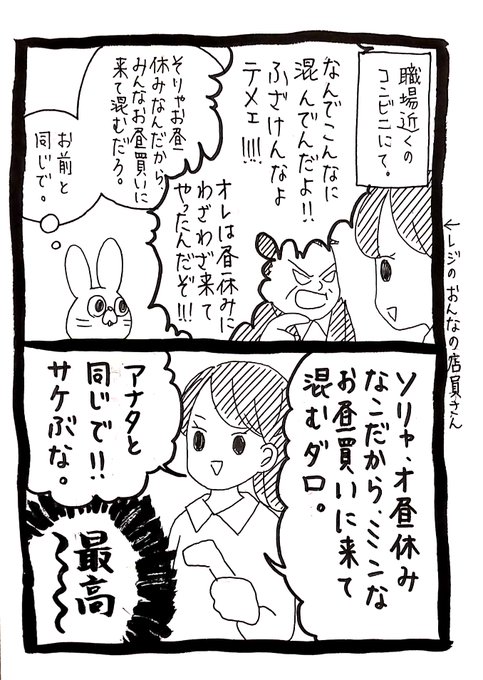 職場近くの
コンビニにて。
なんでこんなに
混んでんだよ!!
ふざけんなよ
テメェ!!!!
オレは昼休みに
わざわざ来て
やったんだぞ!!!
そりゃお昼
休みなんだから、
みんなお昼買いに
来て混むだろ。
お前と
同じで。
←レジのおんなの店員さん
ソリャ、オ昼休み
なこだから、ミンな
お昼買いに来て
混むダロ。
アナタと
同じで!!
サケぶな。
最高